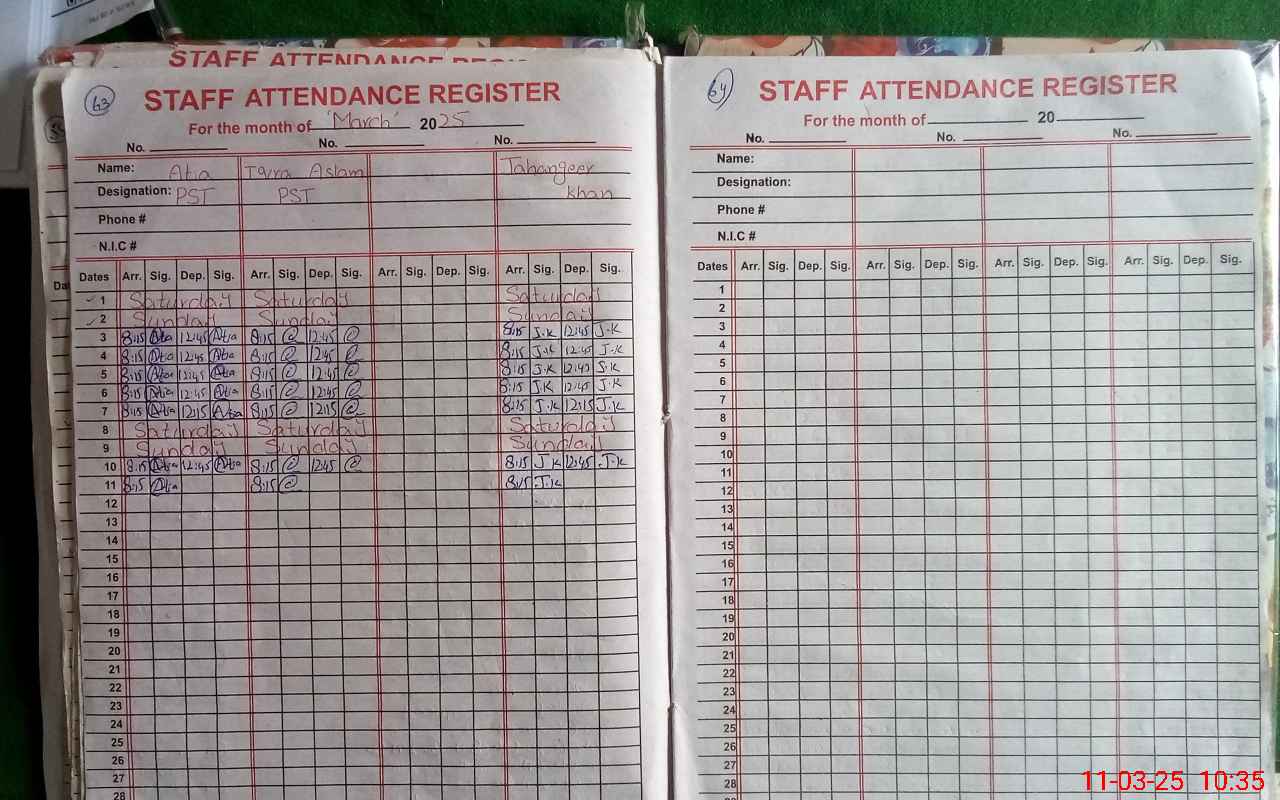 STAFF ATTENDANCE REGISTER
63
STAFF ATTENDANCE REGISTER
For the month of 'March' 2025
No. No. No.
Name: Atia Iqra Aslam Jahangeer
Designation: PST PST khan
Phone #
N.I.C #
Dates Arr. Sig. Dep. Sig. Arr. Sig. Dep. Sig. Arr. Sig. Dep. Sig. Arr. Sig. Dep. Sig.
1 Saturday Saturday Saturday
2 Sunday Sunday Sunday
3 8:15 Atia 12:45 Atia 8:15 12:45 8:15 J.K 12:45 J.K
4 8:15 Atia 12:45 Atia 8:15 12:45 8:15 J.K 12:45 J.K
5 8:15 Atia 12:45 Atia 8:15 12:45 8:15 J.K 12:45 J.K
6 8:15 Atia 12:45 Atia 8:15 12:45 8:15 JK 12:45 J.K
7 8:15 Atia 12:15 Atia 8:15 12:15 8:15 J.K 12:15 J.K
8 Saturday Saturday Saturday
9 Sunday Sunday Sunday
10 8:15 Atia 12:45 Atia 8:15 12:45 8:15 J.K 12:45 J.K
11 8:15 Atia 8:15 8:15 J.K
12
13
14
15
16
17
18
19
20
21
22
23
24
25
26
27
28
64
STAFF ATTENDANCE REGISTER
For the month of 20
No. No. No.
Name:
Designation:
Phone #
N.I.C #
Dates Arr. Sig. Dep. Sig. Arr. Sig. Dep. Sig. Arr. Sig. Dep. Sig. Arr. Sig. Dep. Sig.
1
2
3
4
5
6
7
8
9
10
11
12
13
14
15
16
17
18
19
20
21
22
23
24
25
26
27
28
11-03-25 10:35